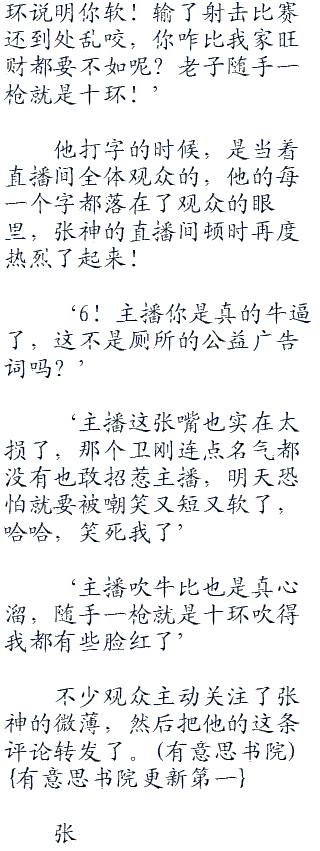 环说明你软！输了射击比赛
还到处乱咬，你咋比我家旺
财都要不如呢？老子随手一
枪就是十环！’
他打字的时候，是当着
直播间全体观众的，他的每
一个字都落在了观众的眼
里，张神的直播间顿时再度
热烈了起来！
‘6！主播你是真的牛逼
了，这不是厕所的公益广告
词吗？’
‘主播这张嘴也实在太
损了，那个卫刚连点名气都
没有也敢招惹主播，明天恐
怕就要被嘲笑又短又软了，
哈哈，笑死我了’
‘主播吹牛比也是真心
溜，随手一枪就是十环吹得
我都有些脸红了’
不少观众主动关注了张
神的微薄，然后把他的这条
评论转发了。(有意思书院)
{有意思书院更新第一}
张